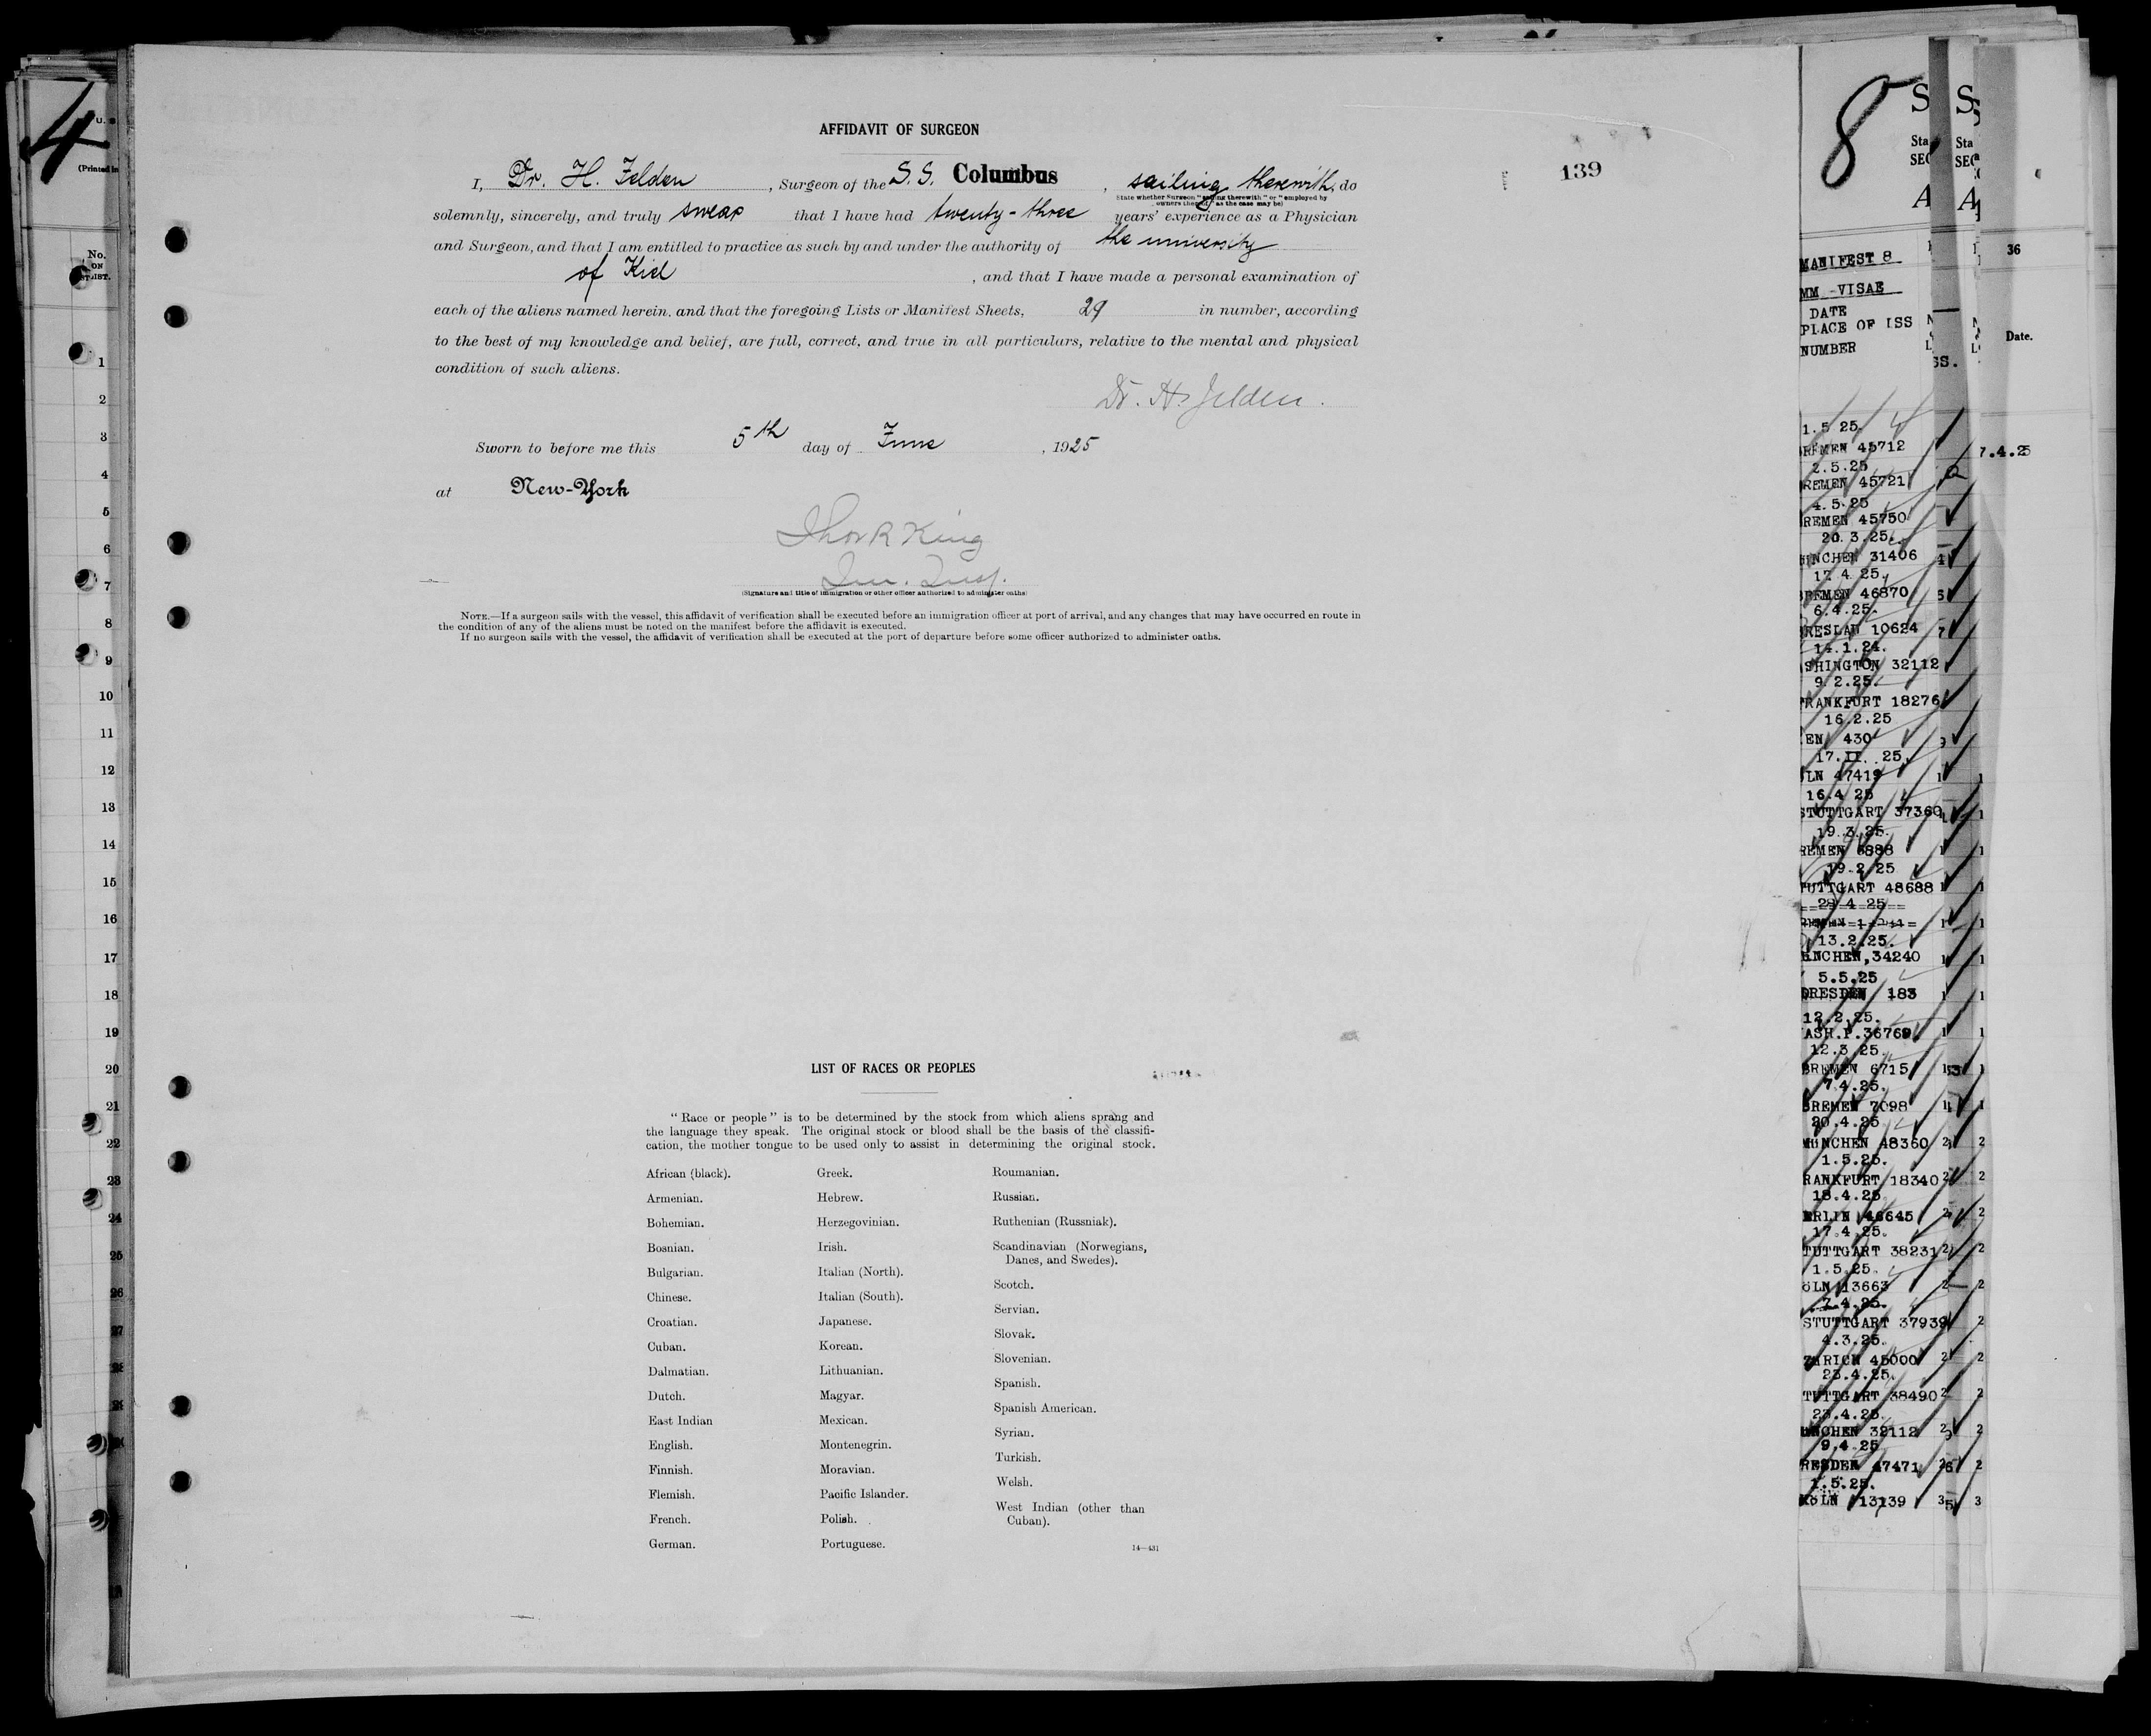 4
U. S
(Printed in
No.
ON
LIST.
1
2
3
4
5
6
7
8
9
10
11
12
13
14
15
16
17
18
19
20
21
22
23
24
25
26
27
AFFIDAVIT OF SURGEON
139
I, Dr. H. Jelden, Surgeon of the S.S. Columbus, sailing therewith, do
State whether Surgeon "sailing therewith" or "employed by
owners thereof," as the case may be)
solemnly, sincerely, and truly swear that I have had twenty-three years' experience as a Physician
and Surgeon, and that I am entitled to practice as such by and under the authority of the university
of Kiel, and that I have made a personal examination of
each of the aliens named herein, and that the foregoing Lists or Manifest Sheets, 29 in number, according
to the best of my knowledge and belief, are full, correct, and true in all particulars, relative to the mental and physical
condition of such aliens.
Dr. H. Jelden.
Sworn to before me this 5th day of June, 1925
at New-York
King
Im. Insp.
(Signature and title of immigration or other officer authorized to administer oaths)
NOTE.—If a surgeon sails with the vessel, this affidavit of verification shall be executed before an immigration officer at port of arrival, and any changes that may have occurred en route in
the condition of any of the aliens must be noted on the manifest before the affidavit is executed.
If no surgeon sails with the vessel, the affidavit of verification shall be executed at the port of departure before some officer authorized to administer oaths.
LIST OF RACES OR PEOPLES
"Race or people" is to be determined by the stock from which aliens sprang and
the language they speak. The original stock or blood shall be the basis of the classifi-
cation, the mother tongue to be used only to assist in determining the original stock.
African (black).
Armenian.
Bohemian.
Bosnian.
Bulgarian.
Chinese.
Croatian.
Cuban.
Dalmatian.
Dutch.
East Indian
English.
Finnish.
Flemish.
French.
German.
Greek.
Hebrew.
Herzegovinian.
Irish.
Italian (North).
Italian (South).
Japanese.
Korean.
Lithuanian.
Magyar.
Mexican.
Montenegrin.
Moravian.
Pacific Islander.
Polish.
Portuguese.
Roumanian.
Russian.
Ruthenian (Russniak).
Scandinavian (Norwegians,
Danes, and Swedes).
Scotch.
Servian.
Slovak.
Slovenian.
Spanish.
Spanish American.
Syrian.
Turkish.
Welsh.
West Indian (other than
Cuban).
14—431
8
MANIFEST 8
MM -VISAE
DATE
PLACE OF ISS
NUMBER
1.5 25.
REMEN 45712
2.5.25
REMEN 45721
4.5.25
REMEN 45750
20.3.25.
NCHEN 31406
17 4 25.
BREMEN 46870
6.4.25.
BRESLAW 10624
14.1.24.
SHINGTON 32112
9.2.25.
FRANKFURT 18276
16.2.25
EN 430
17.II. 25.
LN 47419
16.4 25
STUTTGART 37360
19.3.25.
REMEN 6888
19.2 25
TUTTGART 48688
28 4 25
13.2.25.
NCHEN,34240
5.5.25
DRESDEN 183
12.2.25.
ASH.P.36769
12.3 25.
BREMEN 6715
7.4.25.
BREMEN 7098
20.4.25
MüNCHEN 48360
1.5.25.
RANKFURT 18340
18.4.25
ERLIN 46645
17.4 25.
TUTTGART 38231
1.5.25.
öLN 13663
7.4.25.
STUTTGART 37939
4.3.25.
ZüRICH 45000
23.4.25.
TUTTGART 38490
23.4.25.
NCHEN 32112
9.4 25
RESDEN 47471
1.5.25.
KöLN 13139
36
Date.
7.4.25